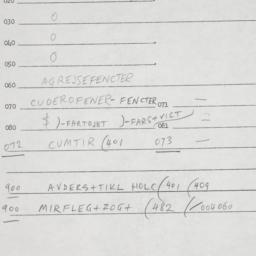 020
030 0
040 0
050 0
060 AGREJSEFENCTER
070 CUDEROFENER-FENCTER 071 —
080 $ )-FARTOJET )-FARS+VIGT 081 =
072 CUMTIR (401 073 —
900 AVDERS+TIKL HOLC (401 (409
900 MIRFLEG+ZOG+ (482 (/004060